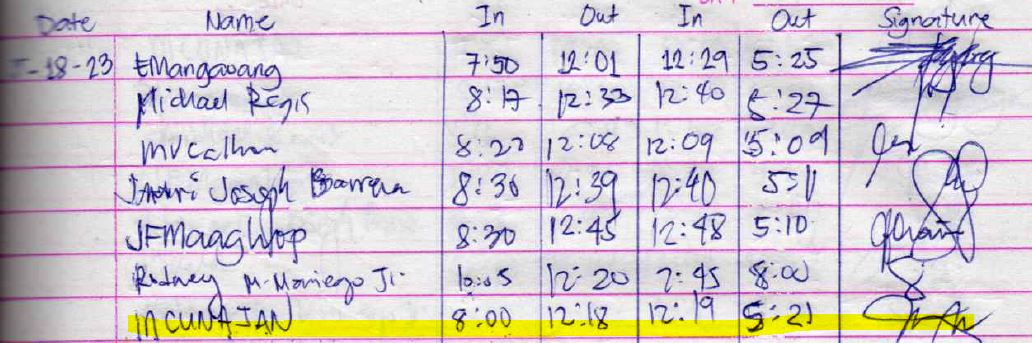 Date Name In Out In Out Signature
-18-23 EMangawang 7:50 12:01 12:29 5:25
Michael Regis 8:17 12:33 12:40 5:27
8:22 12:08 12:09 5:09
Joseph Barrera 8:30 12:39 12:40 5:11
8:30 12:45 12:48 5:10
Rodney M. Maniego Jr. 10:05 12:20 2:45 8:00
MCUNAJAN 8:00 12:18 12:19 5:21